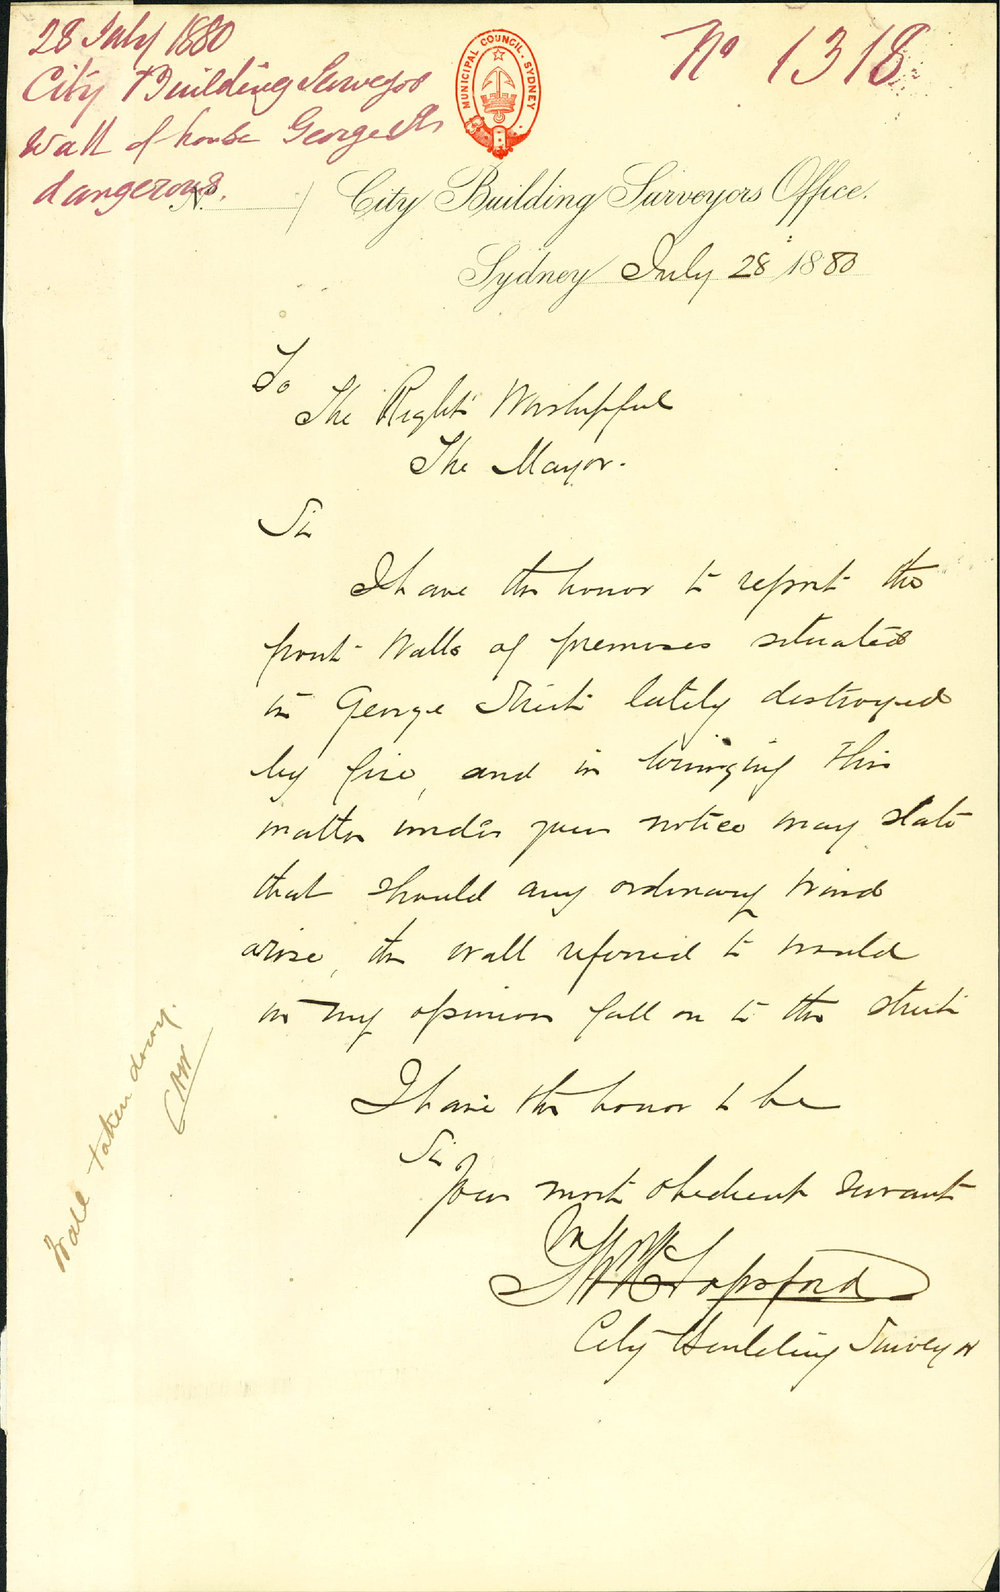 28 July 1880
City Building Surveyor
Wall of house George St
dangerous.
No 1318
MUNICIPAL COUNCIL. SYDNEY
No. /
City Building Surveyors Office.
Sydney July 28 1880
To
The Right Worshipful
The Mayor.
Sir
I have the honor to report the
front Walls of premises situated
in George Street lately destroyed
by fire, and in bringing this
matter under your notice may state
that should any ordinary Wind
arise, the wall referred to would
in my opinion fall on to the street
I have the honor to be
Sir
Your most obedient servant
City Building Surveyor
Wall taken down.